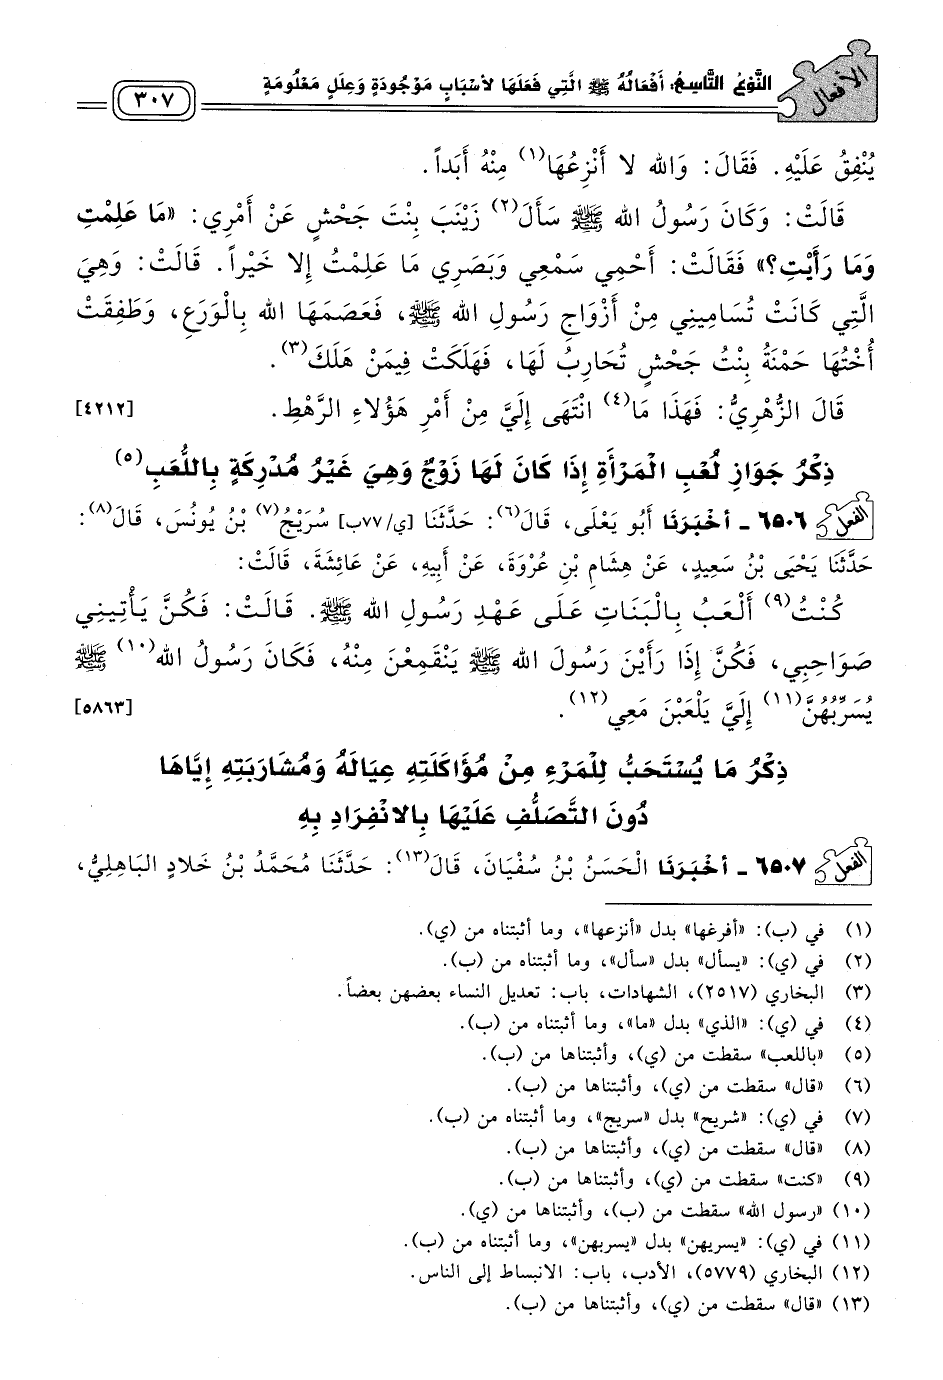 الأفعال
النَّوْعُ التَّاسِعُ: أَفْعَالُهُ ﷺ الَّتِي فَعَلَهَا لأَسْبَابٍ مَوْجُودَةٍ وَعِلَلٍ مَعْلُومَةٍ
٣٠٧
يُنْفِقُ عَلَيْهِ. فَقَالَ: وَالله لا أَنْزِعُهَا(١) مِنْهُ أَبَداً.
قَالَتْ: وَكَانَ رَسُولُ الله ﷺ سَأَلَ(٢) زَيْنَبَ بِنْتَ جَحْشٍ عَنْ أَمْرِي: «مَا عَلِمْتِ
وَمَا رَأَيْتِ؟» فَقَالَتْ: أَحْمِي سَمْعِي وَبَصَرِي مَا عَلِمْتُ إِلا خَيْراً. قَالَتْ: وَهِيَ
الَّتِي كَانَتْ تُسَامِينِي مِنْ أَزْوَاجِ رَسُولِ الله ﷺ، فَعَصَمَهَا الله بِالْوَرَعِ، وَطَفِقَتْ
أُخْتُهَا حَمْنَةُ بِنْتُ جَحْشٍ تُحَارِبُ لَهَا، فَهَلَكَتْ فِيمَنْ هَلَكَ(٣).
قَالَ الزُّهْرِيُّ: فَهَذَا مَا(٤) انْتَهَى إِلَيَّ مِنْ أَمْرِ هَؤُلاءِ الرَّهْطِ. [٤٢١٢]
ذِكْرُ جَوَازِ لُعَبِ الْمَرْأَةِ إِذَا كَانَ لَهَا زَوْجٌ وَهِيَ غَيْرُ مُدْرِكَةٍ بِاللُّعَبِ(٥)
الفعل ٦٥٠٦ - أَخْبَرَنَا أَبُو يَعْلَى، قَالَ(٦): حَدَّثَنَا [ي/٧٧ب] سُرَيْجُ(٧) بْنُ يُونُسَ، قَالَ(٨):
حَدَّثَنَا يَحْيَى بْنُ سَعِيدٍ، عَنْ هِشَامِ بْنِ عُرْوَةَ، عَنْ أَبِيهِ، عَنْ عَائِشَةَ، قَالَتْ:
كُنْتُ(٩) أَلْعَبُ بِالْبَنَاتِ عَلَى عَهْدِ رَسُولِ الله ﷺ. قَالَتْ: فَكُنَّ يَأْتِينِي
صَوَاحِبِي، فَكُنَّ إِذَا رَأَيْنَ رَسُولَ الله ﷺ يَنْقَمِعْنَ مِنْهُ، فَكَانَ رَسُولُ الله(١٠) ﷺ
يُسَرِّبُهُنَّ(١١) إِلَيَّ يَلْعَبْنَ مَعِي(١٢). [٥٨٦٣]
ذِكْرُ مَا يُسْتَحَبُّ لِلْمَرْءِ مِنْ مُؤَاكَلَتِهِ عِيَالَهُ وَمُشَارَبَتِهِ إِيَّاهَا
دُونَ التَّصَلُّفِ عَلَيْهَا بِالانْفِرَادِ بِهِ
الفعل ٦٥٠٧ - أَخْبَرَنَا الْحَسَنُ بْنُ سُفْيَانَ، قَالَ(١٣): حَدَّثَنَا مُحَمَّدُ بْنُ خَلادٍ البَاهِلِيُّ،
(١) في (ب): «أفرغها» بدل «أنزعها»، وما أثبتناه من (ي).
(٢) في (ي): «يسأل» بدل «سأل»، وما أثبتناه من (ب).
(٣) البخاري (٢٥١٧)، الشهادات، باب: تعديل النساء بعضهن بعضاً.
(٤) في (ي): «الذي» بدل «ما»، وما أثبتناه من (ب).
(٥) «باللعب» سقطت من (ي)، وأثبتناها من (ب).
(٦) «قال» سقطت من (ي)، وأثبتناها من (ب).
(٧) في (ي): «شريح» بدل «سريج»، وما أثبتناه من (ب).
(٨) «قال» سقطت من (ي)، وأثبتناها من (ب).
(٩) «كنت» سقطت من (ي)، وأثبتناها من (ب).
(١٠) «رسول الله» سقطت من (ب)، وأثبتناها من (ي).
(١١) في (ي): «يسريهن» بدل «يسربهن»، وما أثبتناه من (ب).
(١٢) البخاري (٥٧٧٩)، الأدب، باب: الانبساط إلى الناس.
(١٣) «قال» سقطت من (ي)، وأثبتناها من (ب).